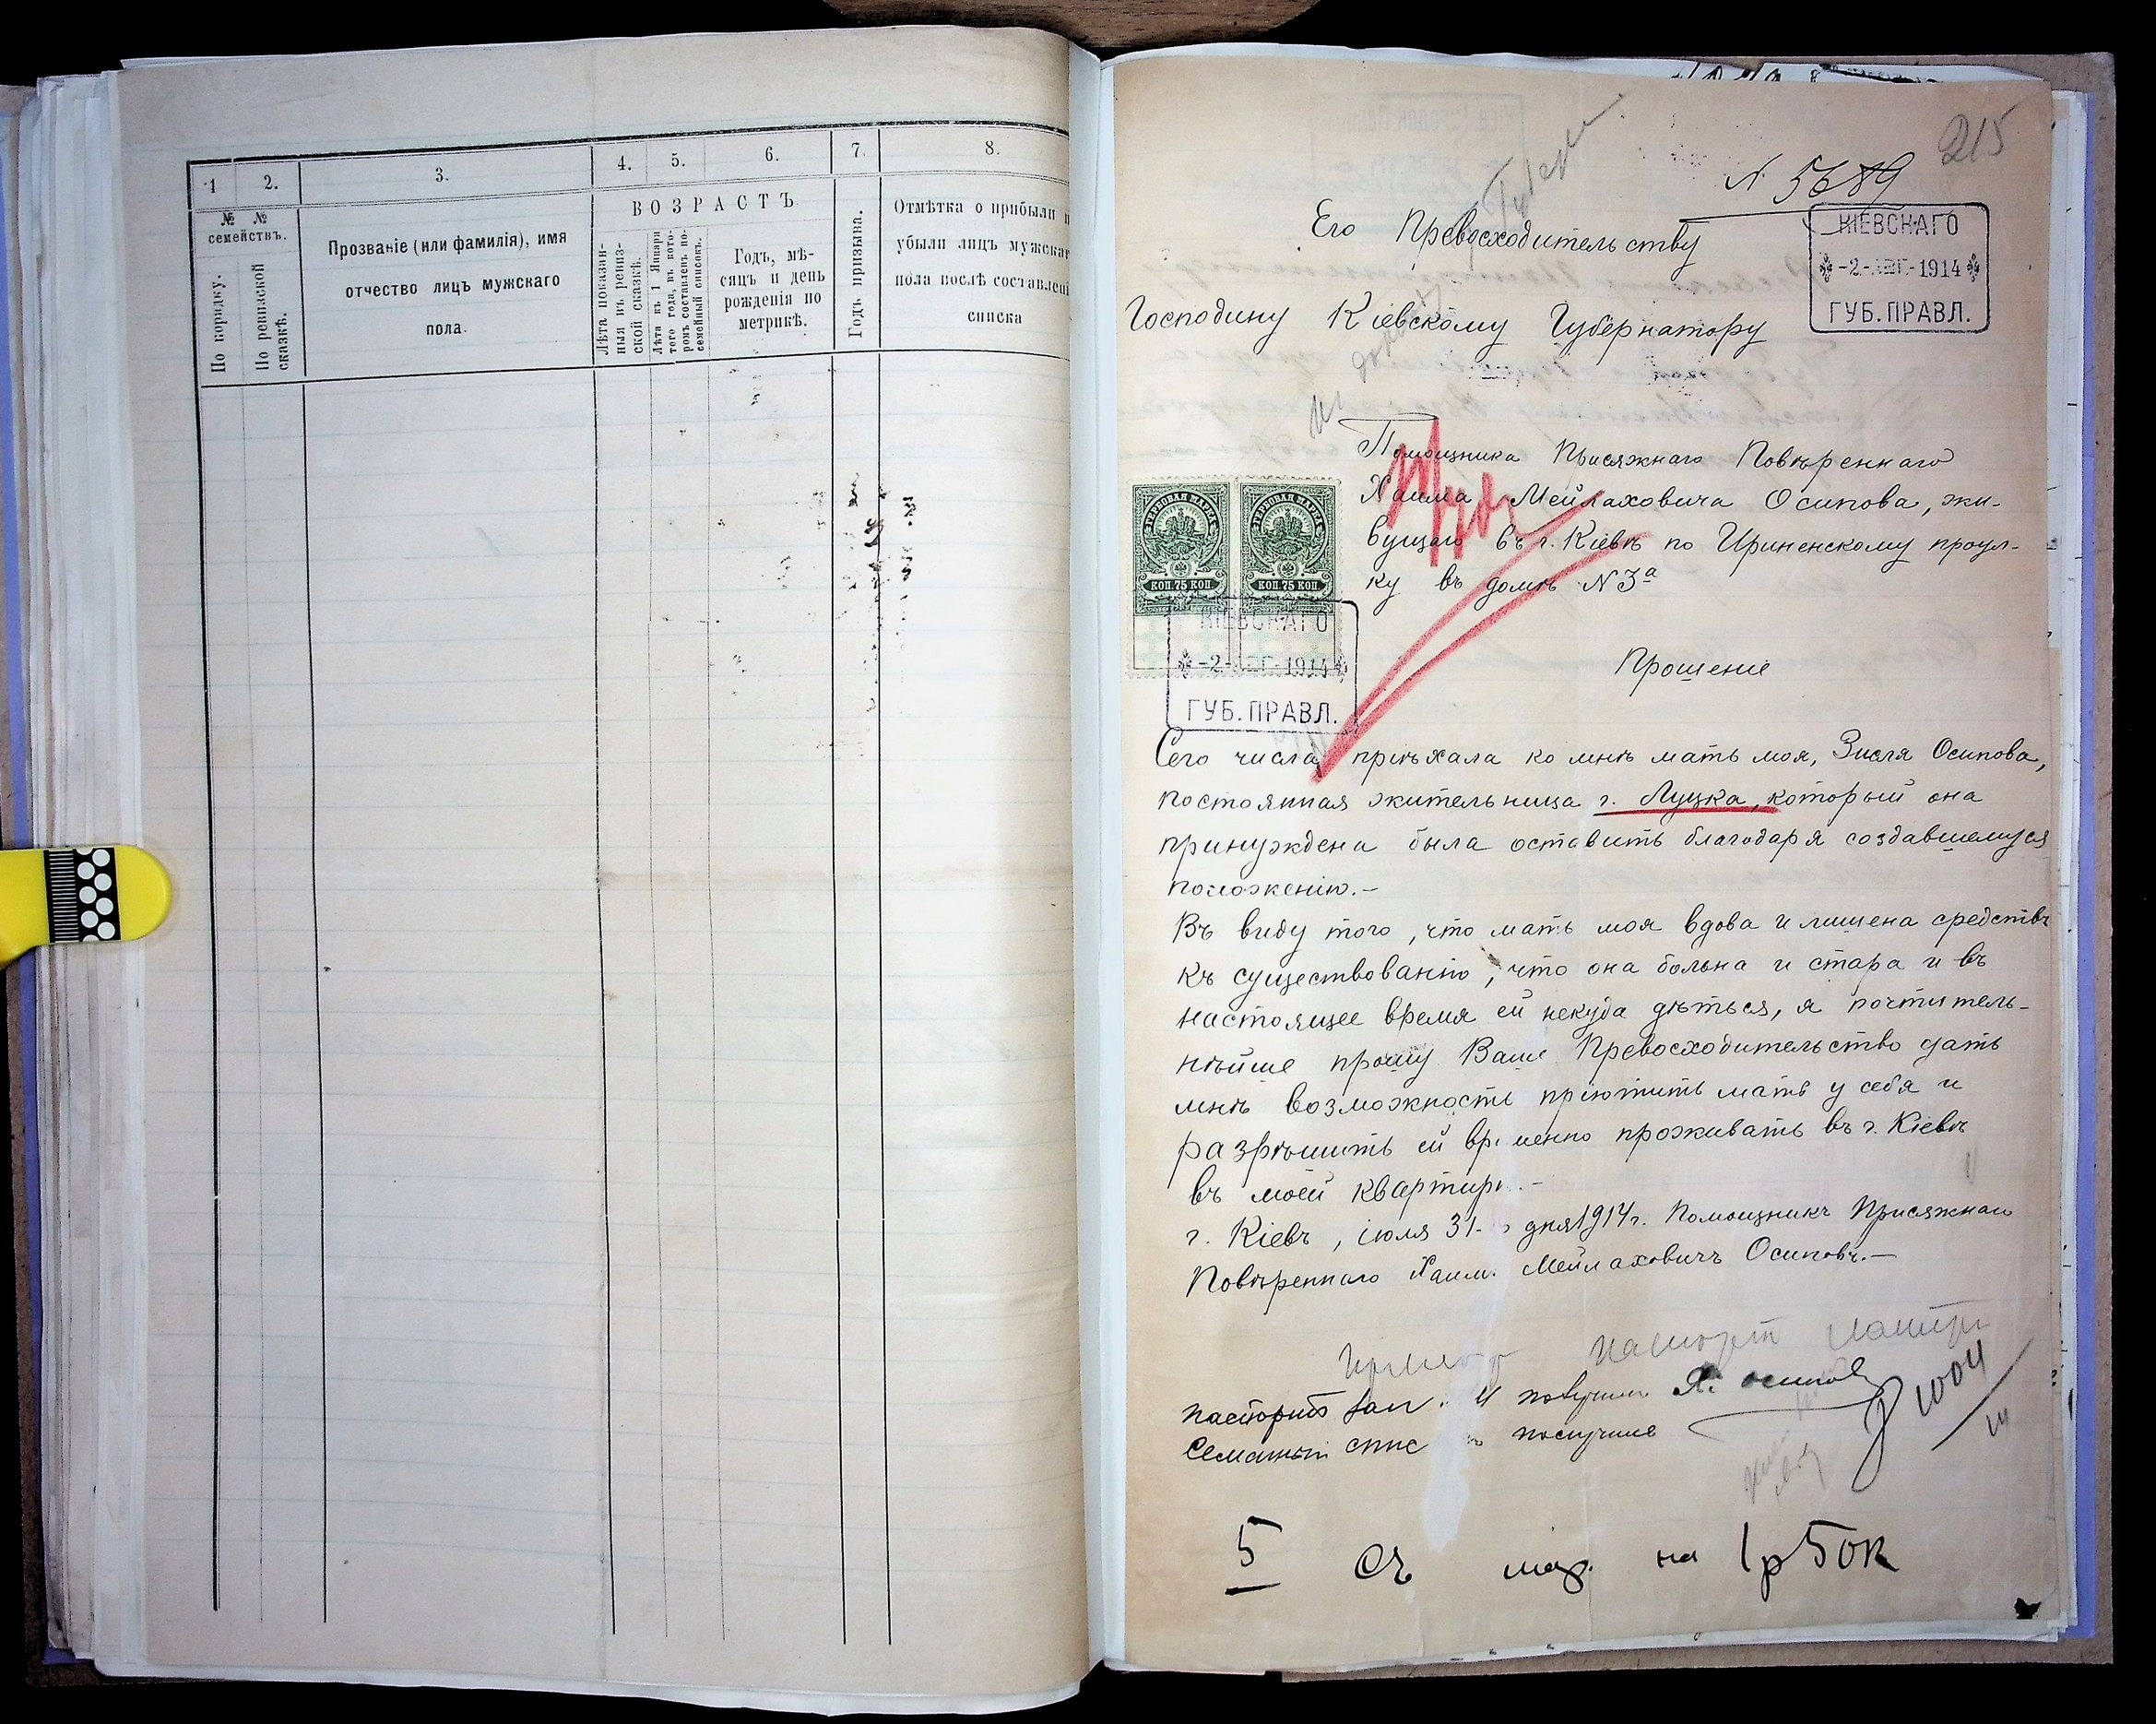 1
2.
3.
4.
5.
6.
7.
8.
№ №
семействъ.
По порядку.
По ревизской
сказкѣ.
Прозваніе (или фамилія), имя
отчество лицъ мужскаго
пола.
ВОЗРАСТЪ
Лѣта показан-
ныя въ ревиз-
ской сказкѣ.
Лѣта къ 1 Января
того года, въ кото-
ромъ составленъ по-
семейный списокъ.
Годъ, мѣ-
сяцъ и день
рожденія по
метрикѣ.
Годъ призыва.
Отмѣтка о прибыли и
убыли лицъ мужскаг
пола послѣ составлені
списка
215
N 5689
КІЕВСКАГО
-2-АВГ.-1914
ГУБ.ПРАВЛ.
Его Превосходительству
Господину Кіевскому Губернатору
Помощника Присяжнаго Повѣреннаго
Хаима Мейлаховича Осипова, жи-
вущаго въ г. Кіевѣ по Ириненскому проул-
ку въ домѣ N 3а
ГЕРБОВАЯ МАРКА
КОП. 75 КОП
ГЕРБОВАЯ МАРКА
КОП. 75 КОП
КІЕВСКАГО
-2-АВГ.-1914
ГУБ.ПРАВЛ.
Прошеніе
Сего числа пріѣхала ко мнѣ мать моя, Зисля Осипова,
постоянная жительница г. Луцка, который она
принуждена была оставить благодаря создавшемуся
положенію.-
Въ виду того, что мать моя вдова и лишена средствъ
къ существованію, что она больна и стара и въ
настоящее время ей некуда дѣться, я почтитель-
нѣйше прошу Ваше Превосходительство дать
мнѣ возможность пріютить мать у себя и
разрѣшить ей временно проживать въ г. Кіевѣ
въ моей квартирѣ.-
г. Кіевъ, іюля 31-го дня 1914 г. Помощникъ Присяжнаго
Повѣреннаго Хаимъ Мейлаховичъ Осиповъ.-
паспорт матери
паспортъ и получилъ Х. Осипов
списокъ получилъ
1004
5 съ мар. на 1р 50к